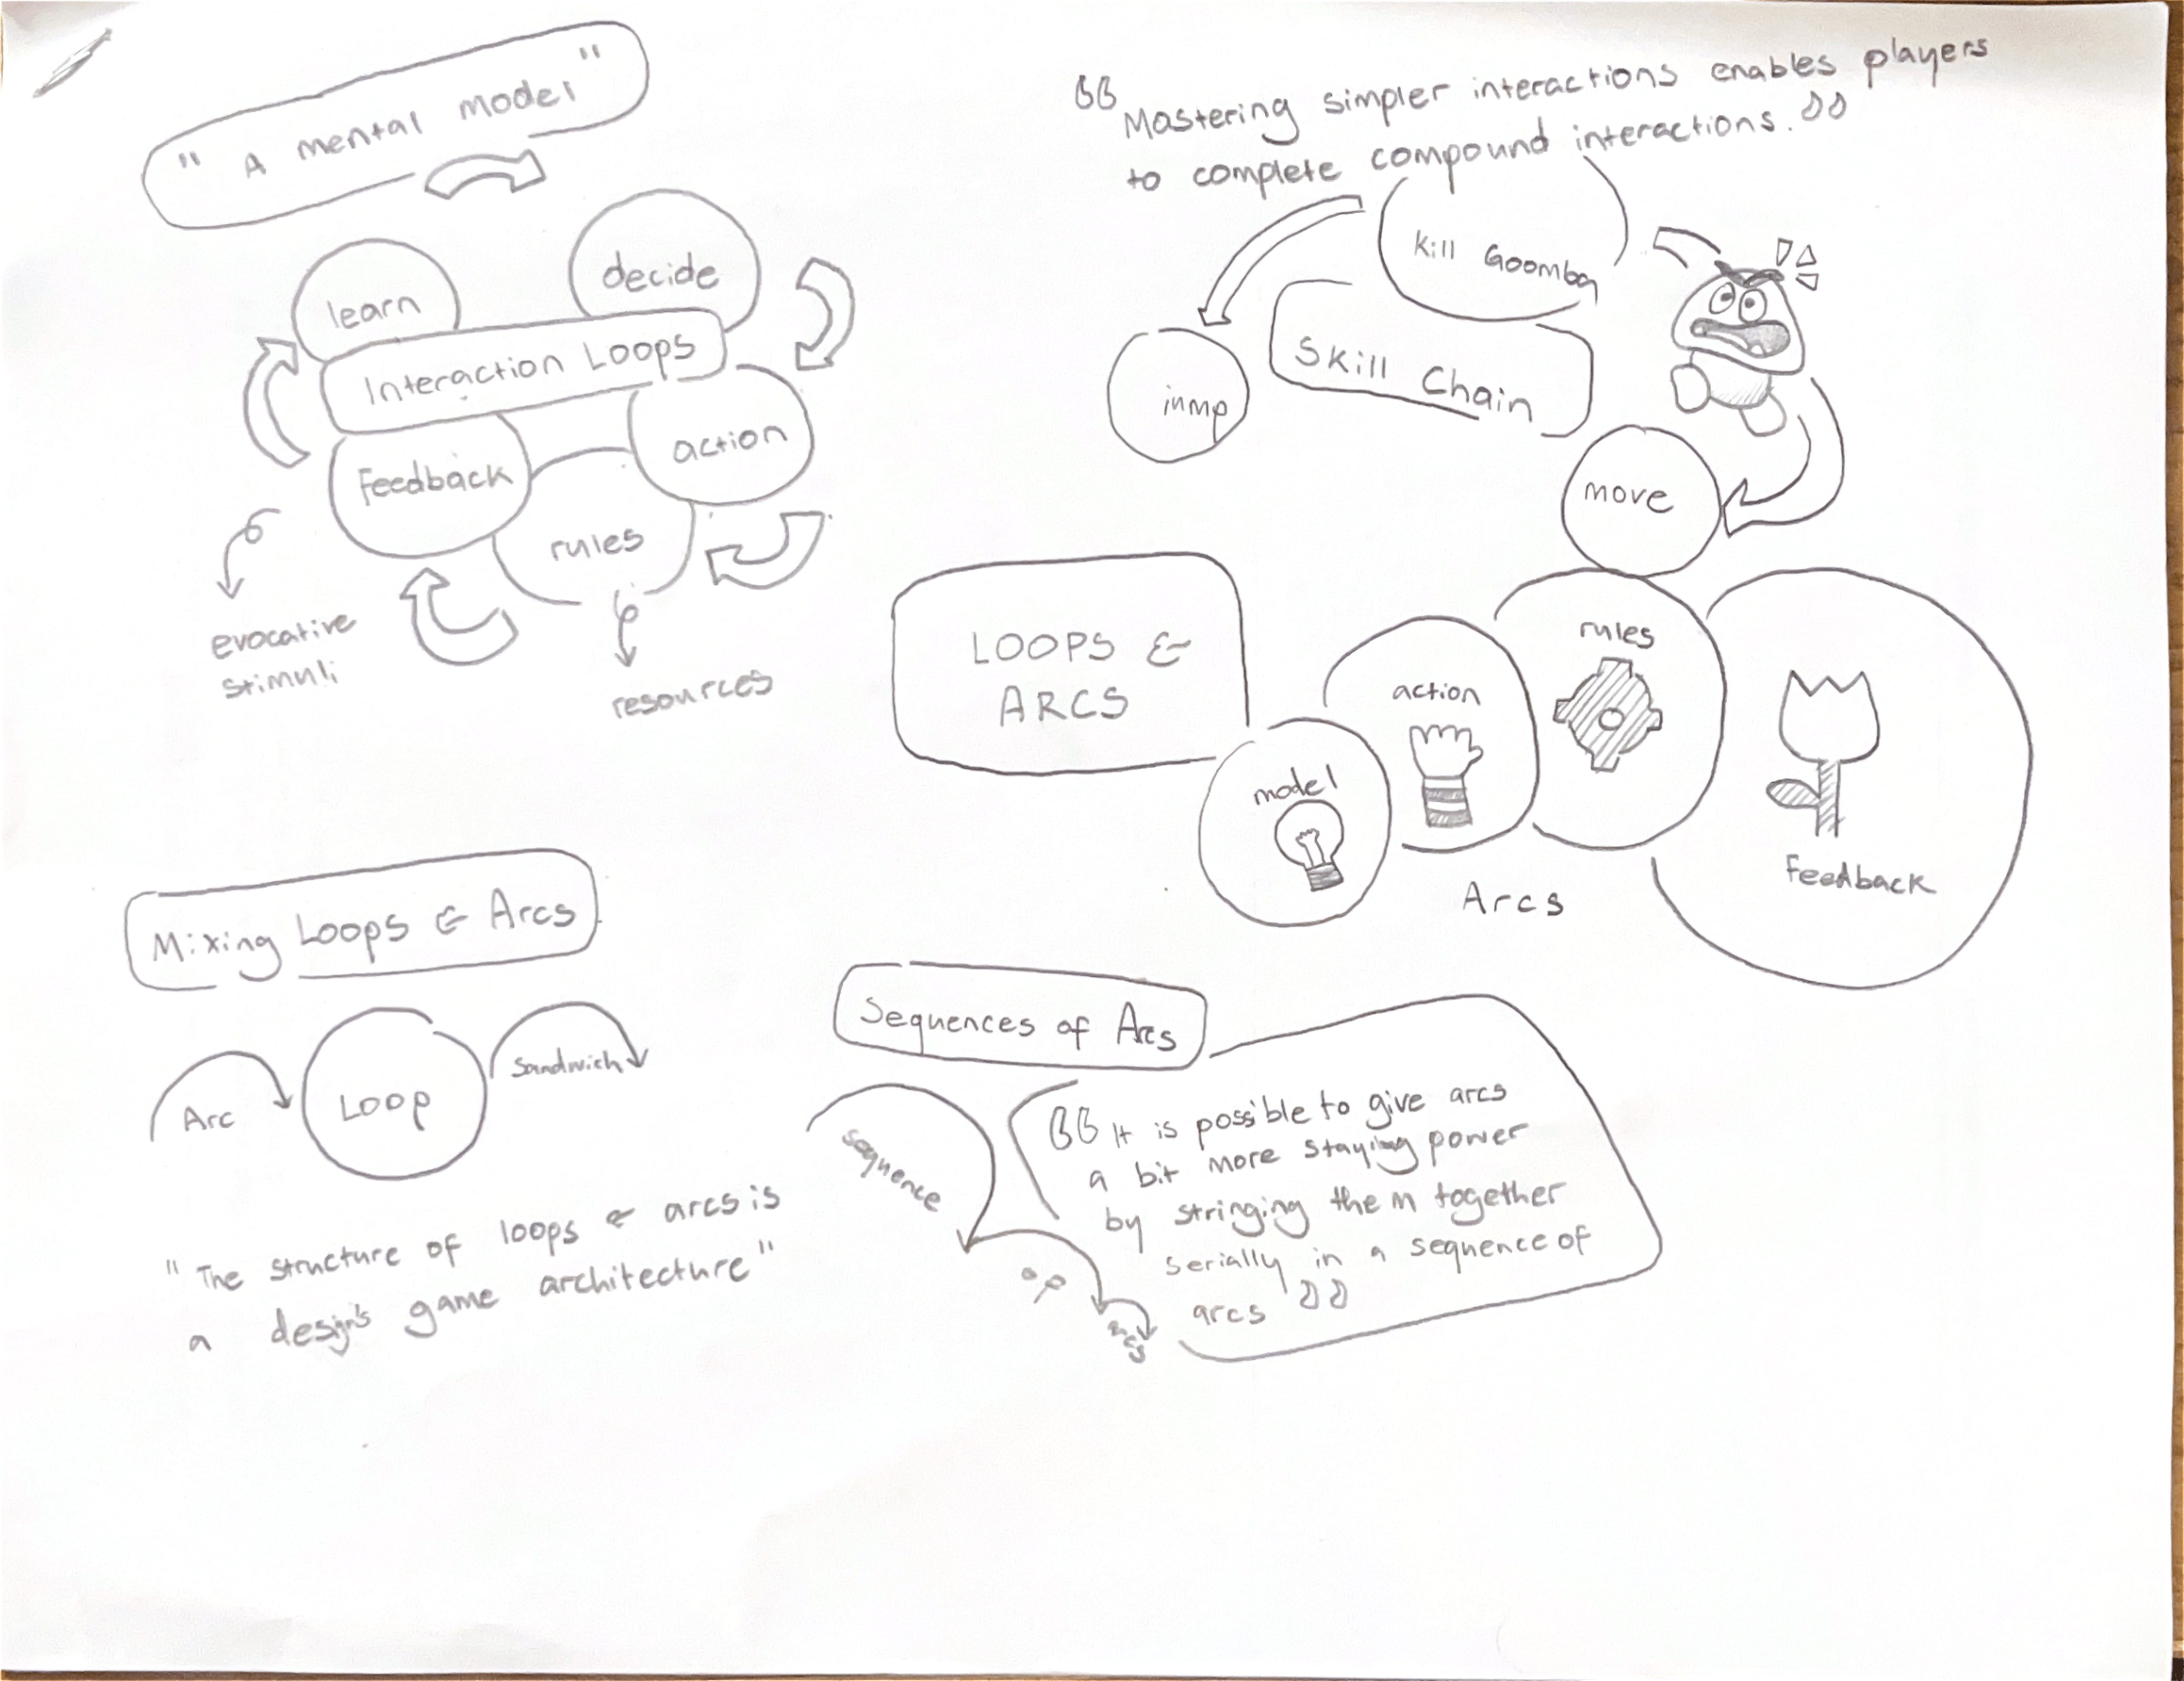 " A mental model "
learn
decide
Interaction Loops
Feedback
action
rules
evocative
stimuli
resources
Mastering simpler interactions enables players
to complete compound interactions.
Kill Goomba
Skill Chain
jump
move
LOOPS &
ARCS
model
action
rules
Feedback
Arcs
Mixing Loops & Arcs
Arc
Loop
Sandwich
"The structure of loops & arcs is
a design's game architecture"
Sequences of Arcs
sequence
of
arcs
It is possible to give arcs
a bit more staying power
by stringing them together
serially in a sequence of
arcs